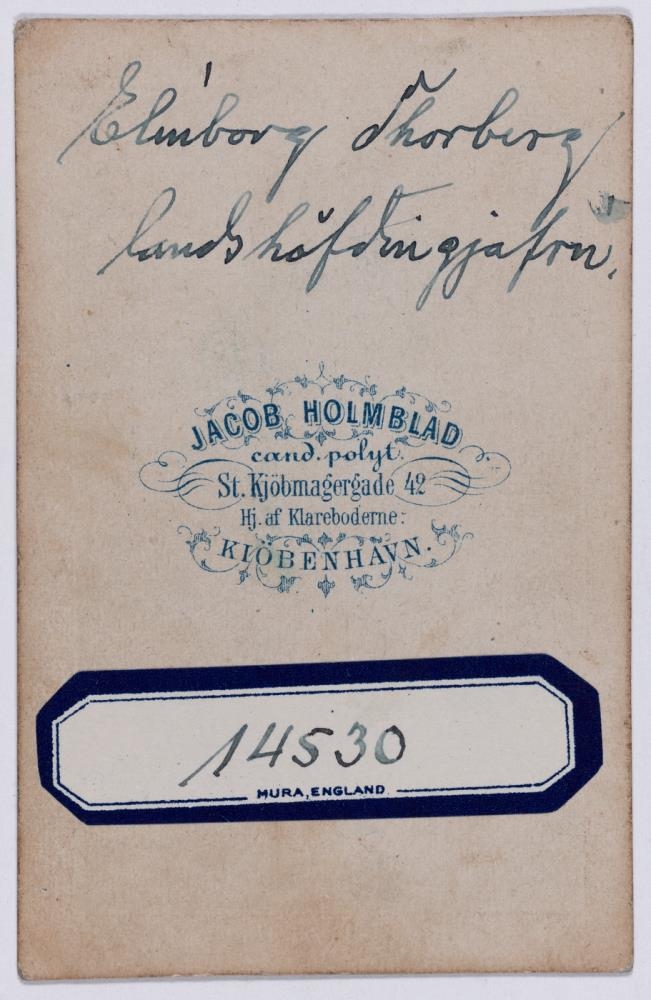 Elínborg Thorberg
landshöfdingjafrú.
JACOB HOLMBLAD
cand. polyt.
St. Kjöbmagergade 42
Hj. af Klareboderne:
KIÖBENHAVN.
14530
MURA, ENGLAND